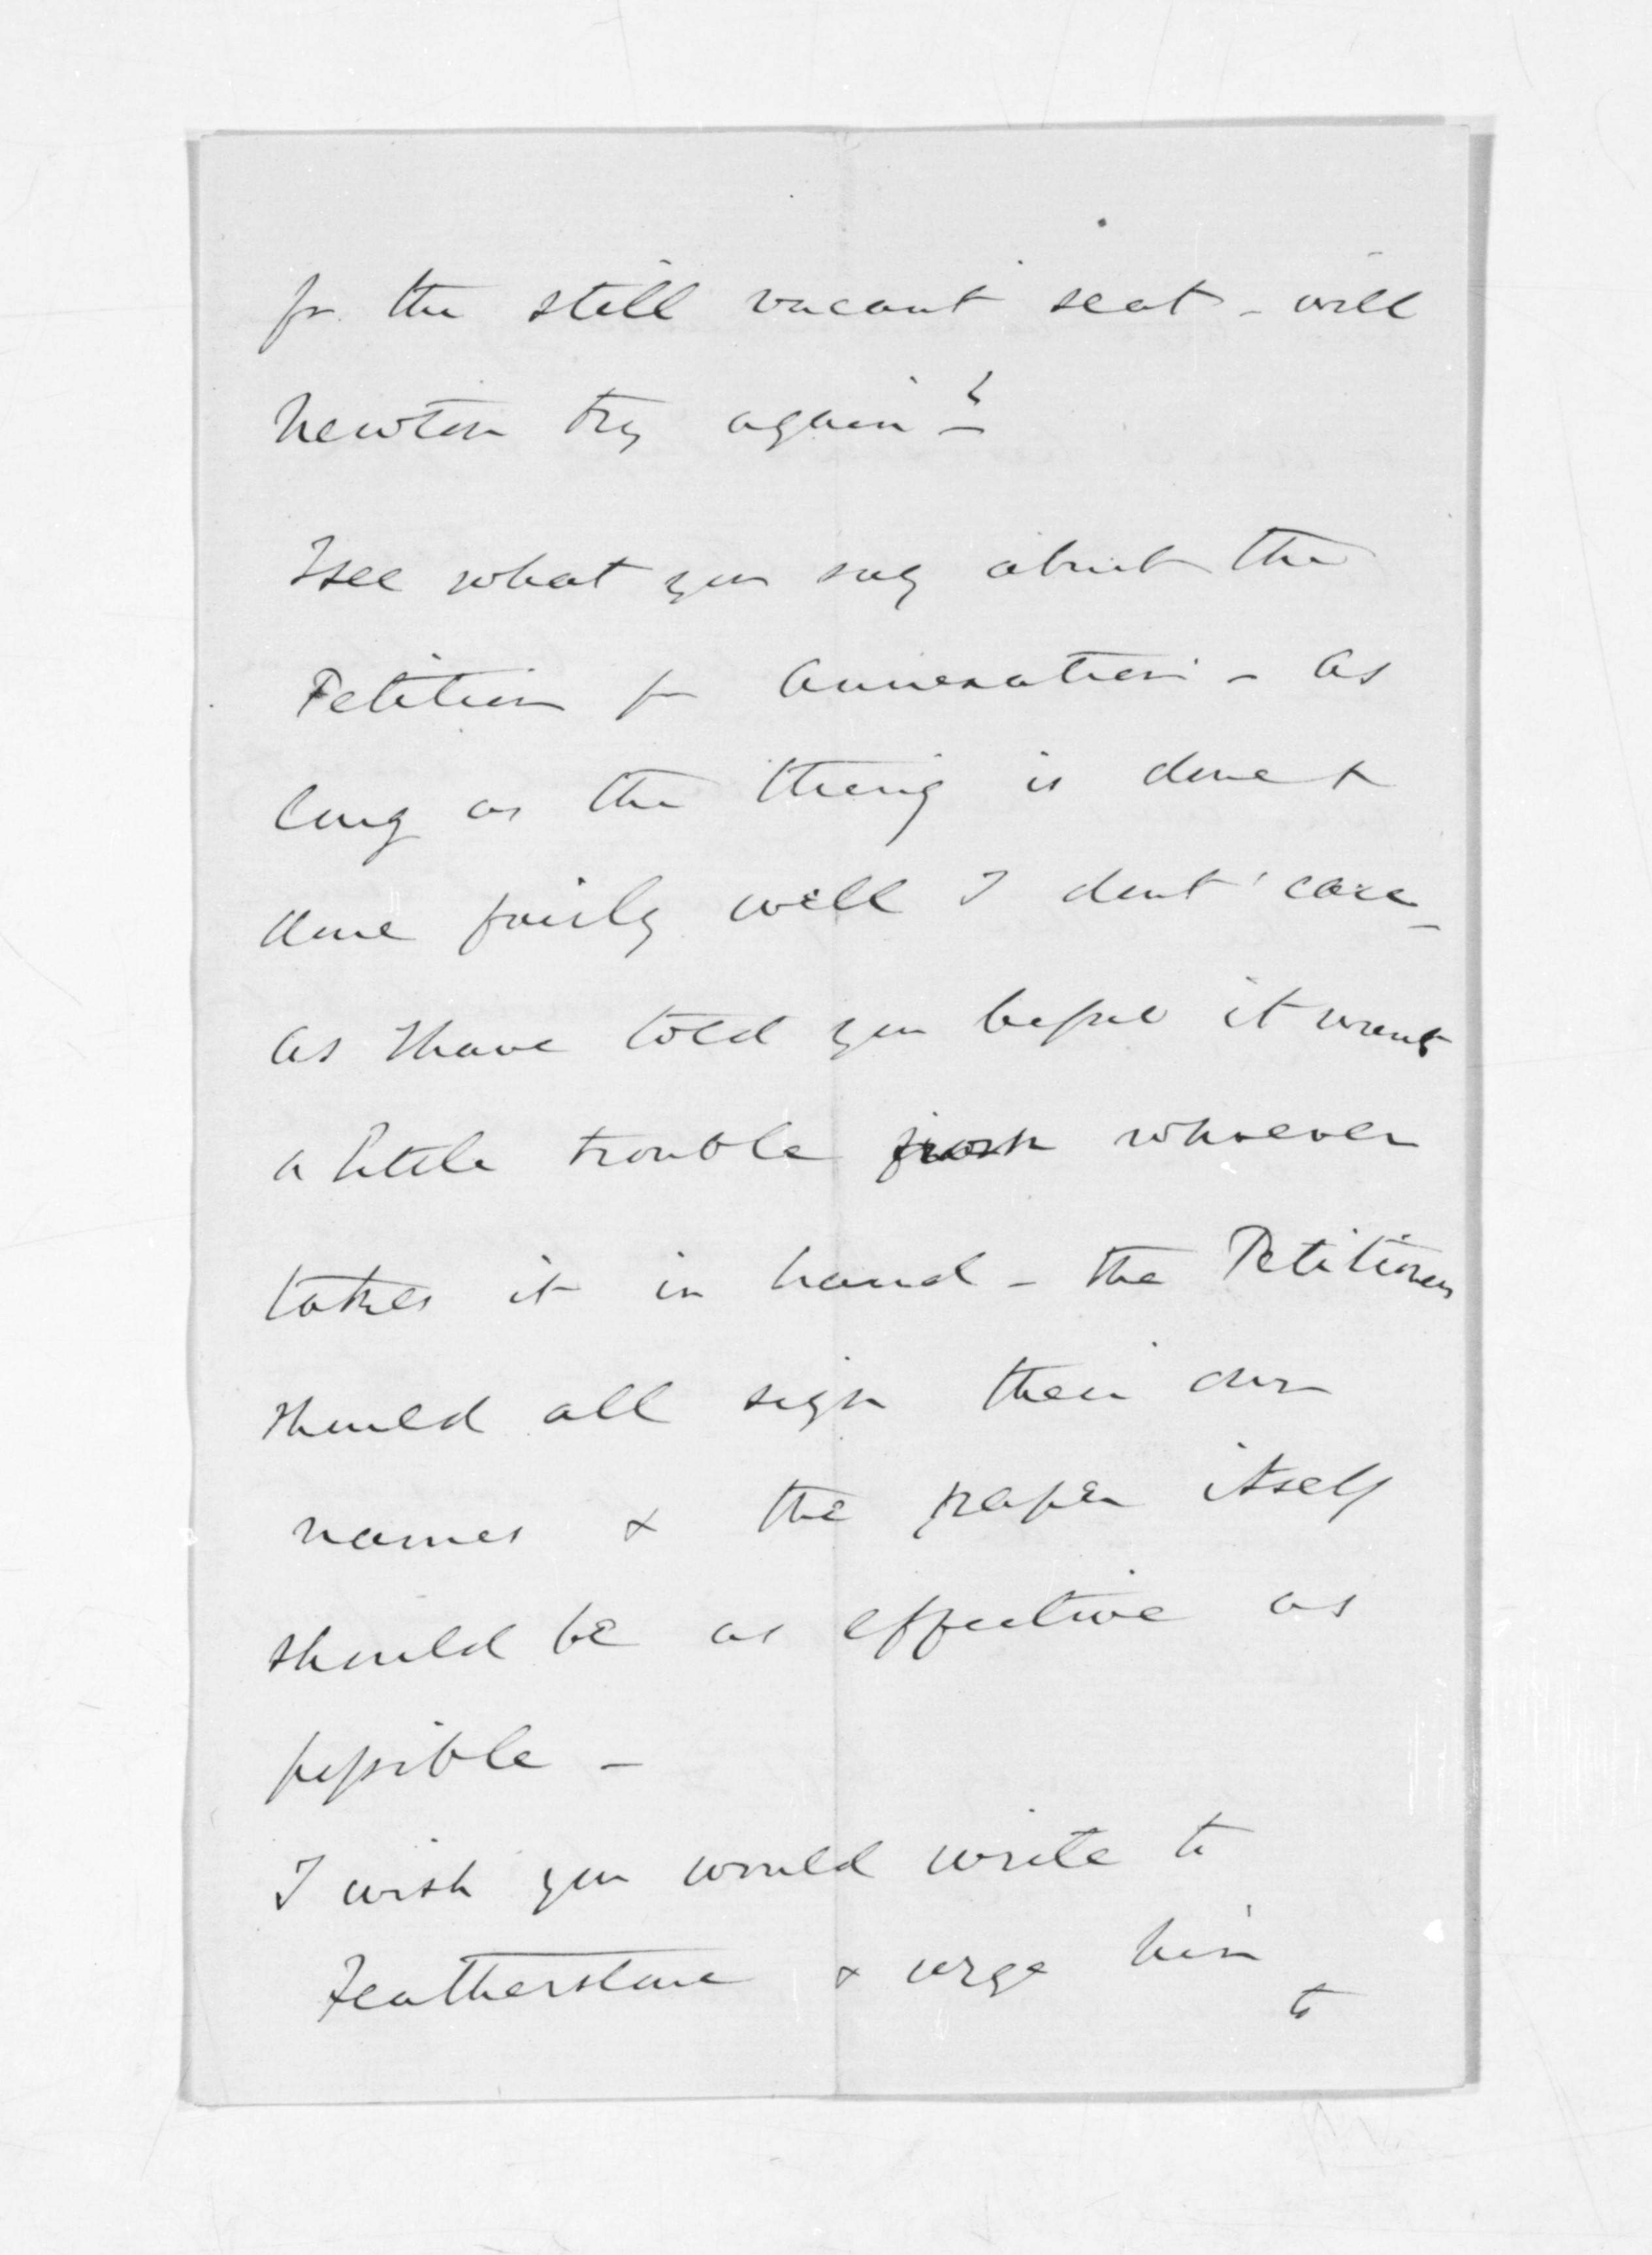 for the still vacant seat - will
Newton try again?
I see what you say about the
Petition for annexation - as
long as the thing is done &
done fairly well I dont care -
as I have told you before it wants
a little trouble from whoever
takes it in hand - the Petitioners
should all sign their own
names & the paper itself
should be as effective as
possible -
I wish you would write to
Featherstone & urge him
to